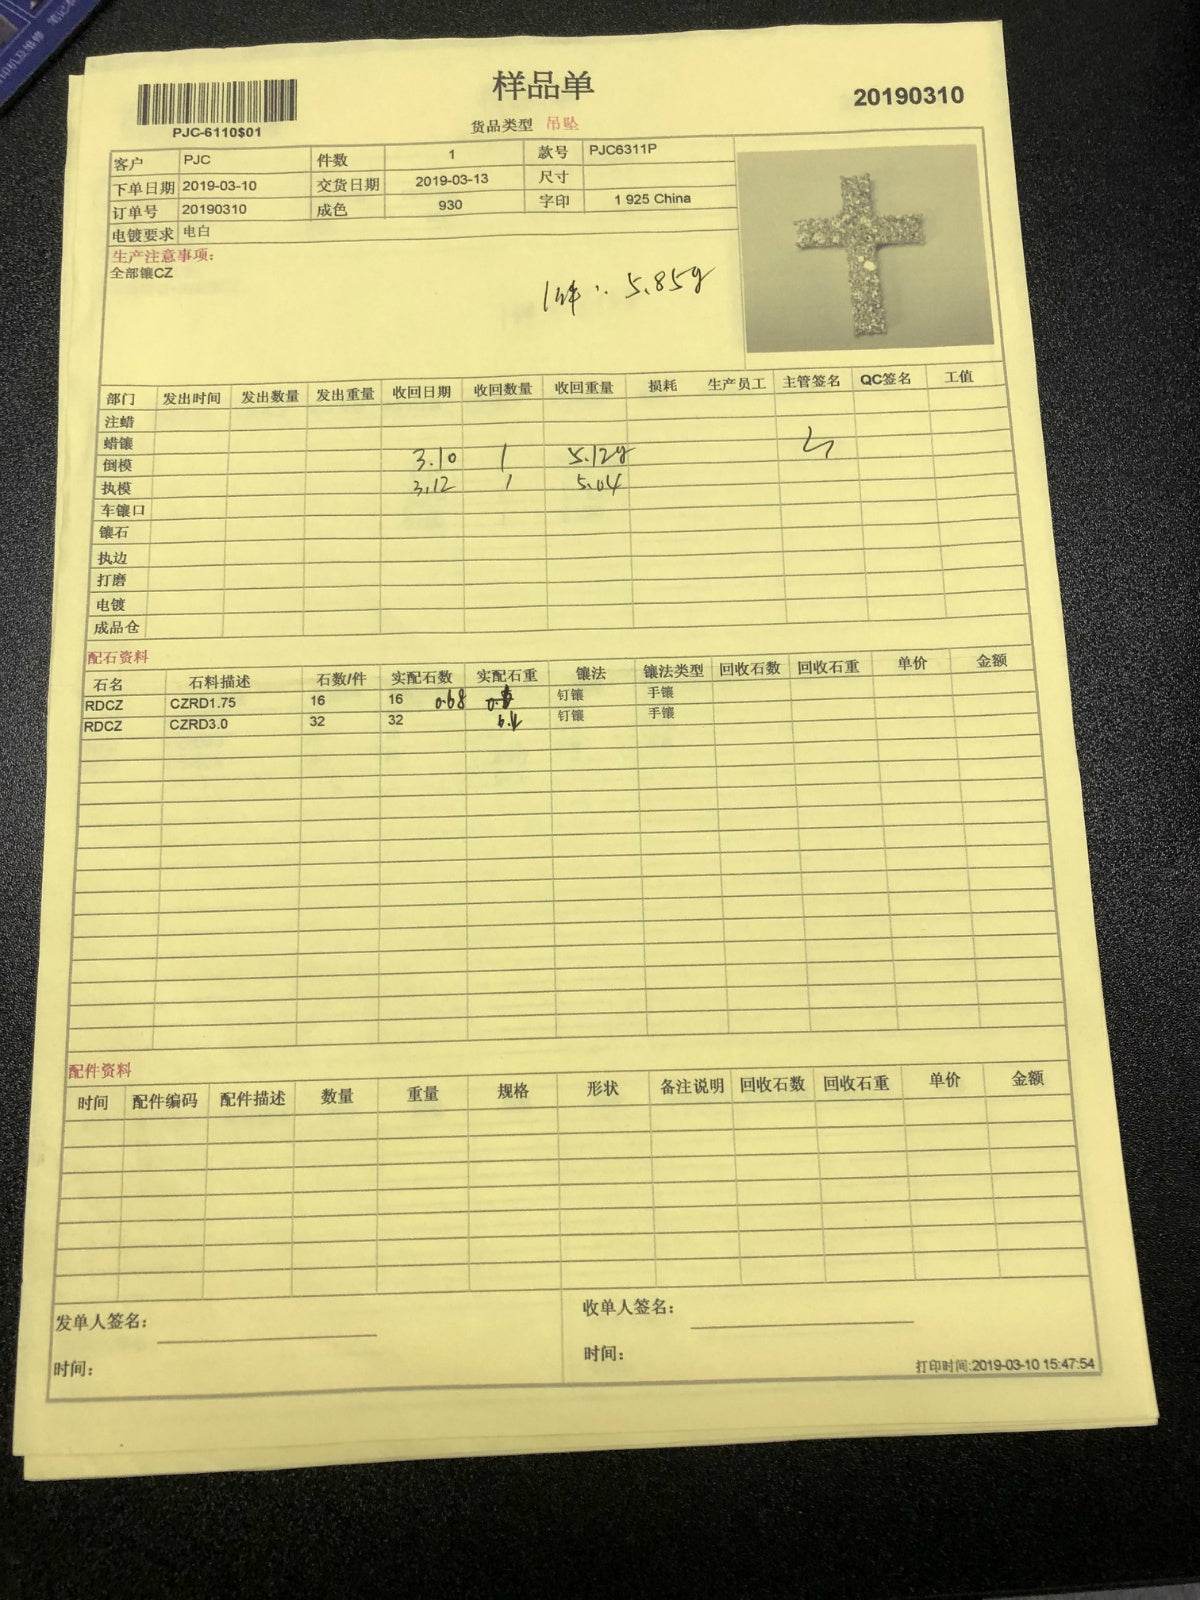 样品单
20190310
PJC-6110$01
货品类型 吊坠
客户 PJC 件数 1 款号 PJC6311P
下单日期 2019-03-10 交货日期 2019-03-13 尺寸
订单号 20190310 成色 930 字印 1 925 China
电镀要求 电白
生产注意事项:
全部镶CZ
1件: 5.85g
部门 发出时间 发出数量 发出重量 收回日期 收回数量 收回重量 损耗 生产员工 主管签名 QC签名 工值
注蜡
蜡镶
倒模 3.10 1 5.12g
执模 3.12 1 5.04
车镶口
镶石
执边
打磨
电镀
成品仓
配石资料
石名 石料描述 石数/件 实配石数 实配石重 镶法 镶法类型 回收石数 回收石重 单价 金额
RDCZ CZRD1.75 16 16 0.68 钉镶 手镶
RDCZ CZRD3.0 32 32 钉镶 手镶
配件资料
时间 配件编码 配件描述 数量 重量 规格 形状 备注说明 回收石数 回收石重 单价 金额
发单人签名: 收单人签名:
时间: 时间:
打印时间:2019-03-10 15:47:54